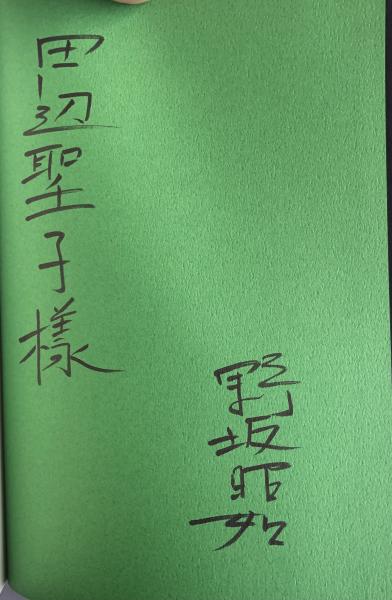 田辺聖子様
野坂昭如